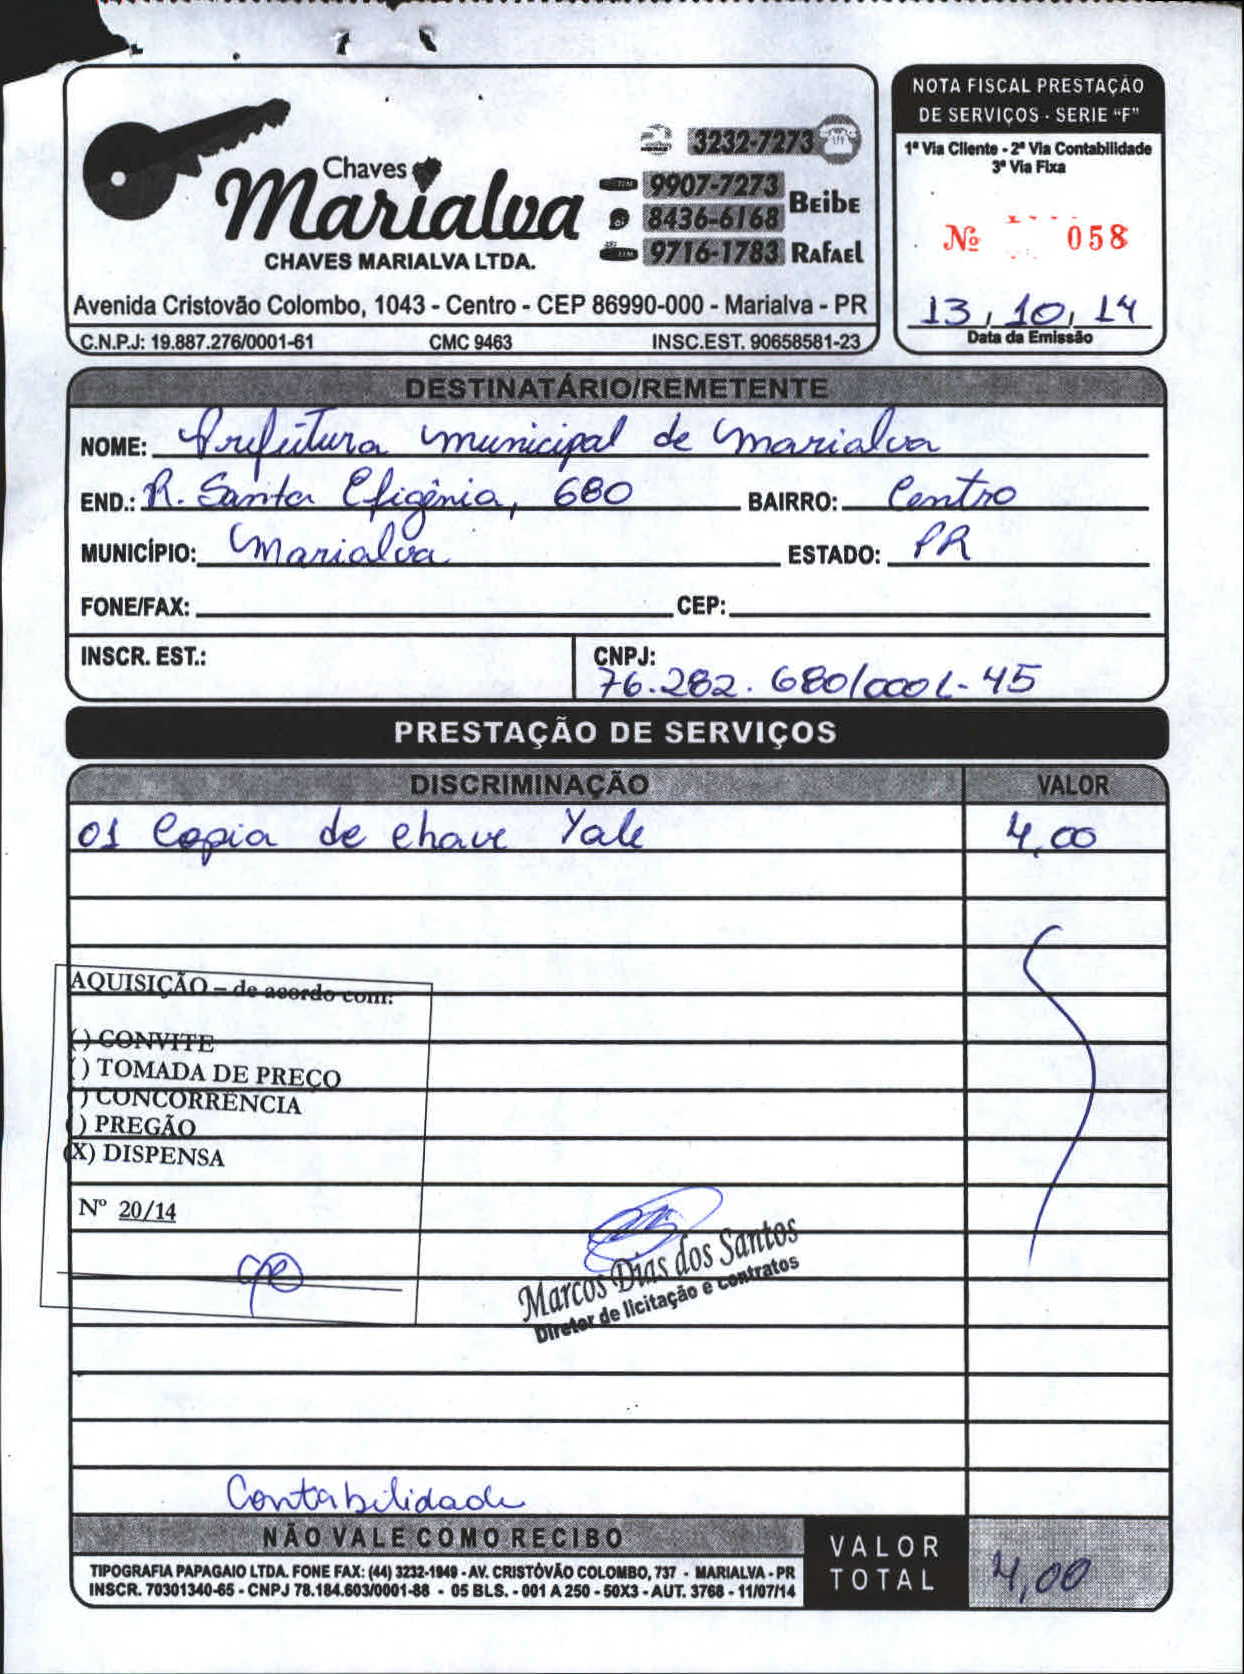 Chaves
Marialva
CHAVES MARIALVA LTDA.
3232-7273
9907-7273
8436-6168 BEIBE
9716-1783 RAFAEL
Avenida Cristovão Colombo, 1043 - Centro - CEP 86990-000 - Marialva - PR
C.N.P.J: 19.887.276/0001-61 CMC 9463 INSC.EST. 90658581-23
NOTA FISCAL PRESTAÇÃO
DE SERVIÇOS - SERIE "F"
1ª Via Cliente - 2ª Via Contabilidade
3ª Via Fixa
Nº 058
13, 10, 14
Data da Emissão
DESTINATÁRIO/REMETENTE
NOME: Prefeitura Municipal de Marialva
END.: R. Santa Efigênia, 680 BAIRRO: Centro
MUNICÍPIO: Marialva ESTADO: PR
FONE/FAX: CEP:
INSCR. EST.: CNPJ:
76.282.680/0001-45
PRESTAÇÃO DE SERVIÇOS
DISCRIMINAÇÃO VALOR
01 Copia de chave Yale 4,00
AQUISIÇÃO – de acordo com:
( ) CONVITE
( ) TOMADA DE PREÇO
( ) CONCORRÊNCIA
( ) PREGÃO
(X) DISPENSA
Nº 20/14
Marcos Dias dos Santos
Diretor de licitação e contratos
Contabilidade
NÃO VALE COMO RECIBO
TIPOGRAFIA PAPAGAIO LTDA. FONE FAX: (44) 3232-1949 - AV. CRISTÓVÃO COLOMBO, 737 - MARIALVA - PR
INSCR. 70301340-65 - CNPJ 78.184.603/0001-88 - 05 BLS. - 001 A 250 - 50X3 - AUT. 3768 - 11/07/14
VALOR
TOTAL
4,00